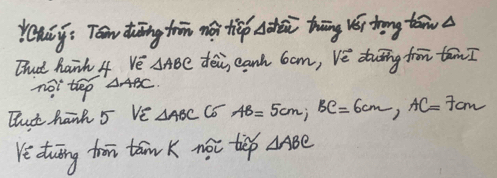 ! Chú ý: Tâm đường tròn nội tiếp Δ đều trùng với trọng tâm Δ
Thực hành 4 Vẽ ΔABC đều, cạnh 6cm, Vẽ đường tròn tâm I
nội tiếp ΔABC.
Thực hành 5 Vẽ ΔABC Có AB = 5cm; BC = 6cm, AC = 7cm
Vẽ đường tròn tâm K nội tiếp ΔABC